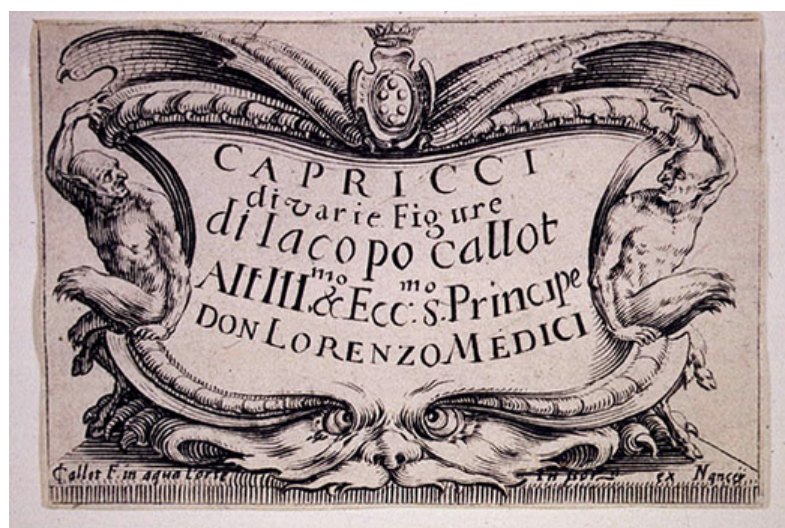 CAPRICCI
di varie Figure
di Iacopo Callot
All Ill.mo & Ecc.mo S. Principe
DON LORENZO MEDICI
Callot F. in aqua forte
ex Nancey.